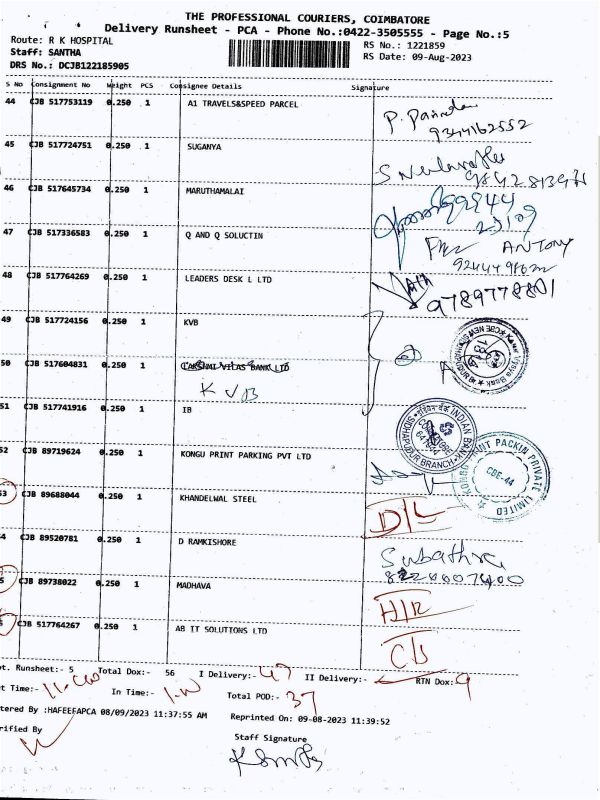 THE PROFESSIONAL COURIERS, COIMBATORE
Delivery Runsheet - PCA - Phone No.:0422-3505555 - Page No.:5
Route: R K HOSPITAL
RS No.: 1221859
Staff: SANTHA
RS Date: 09-Aug-2023
DRS No.: DCJB122185905
S No Consignment No Weight PCS Consignee Details Signature
44 CJB 517753119 0.250 1 A1 TRAVELS&SPEED PARCEL
9344162552
45 CJB 517724751 0.250 1 SUGANYA
46 CJB 517645734 0.250 1 MARUTHAMALAI
47 CJB 517336583 0.250 1 Q AND Q SOLUCTIN
ANTONY
48 CJB 517764269 0.250 1 LEADERS DESK L LTD
9789778801
49 CJB 517724156 0.250 1 KVB
50 CJB 517604831 0.250 1 LAKSHMI VILAS BANK LTD
K V B
51 CJB 517741916 0.250 1 IB
INDIAN BANK
BRANCH
52 CJB 89719624 0.250 1 KONGU PRINT PARKING PVT LTD
PACKIN PRIVATE LIMITED
CBE-44
53 CJB 89688044 0.250 1 KHANDELWAL STEEL
D/L
54 CJB 89520781 0.250 1 D RAMKISHORE
Subathra
55 CJB 89738022 0.250 1 MADHAVA
H/R
CJB 517764267 0.250 1 AB IT SOLUTIONS LTD
C/S
ot. Runsheet:- 5 Total Dox:- 56 I Delivery:- 47 II Delivery:- RTN Dox: 9
t Time:- In Time:- Total POD:- 37
tered By :HAFEEFAPCA 08/09/2023 11:37:55 AM Reprinted On: 09-08-2023 11:39:52
rified By
Staff Signature